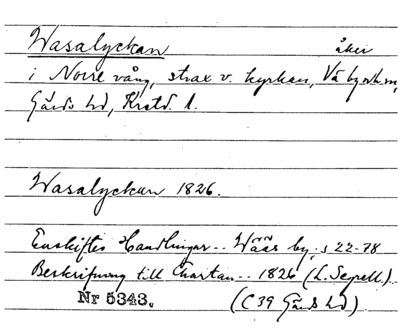 Wasalyckan åker
i Norre vång, strax v. kyrkan, Vä by o. hm,
Gärds hd, Kristd. l.
Wasalyckan 1826.
Enskiftes Handlingar.. Wääs by, s 22-78
Beskrifning till Chartan.. 1826 (L. Segrell).
Nr 5343. (C 39 Gärds hd)